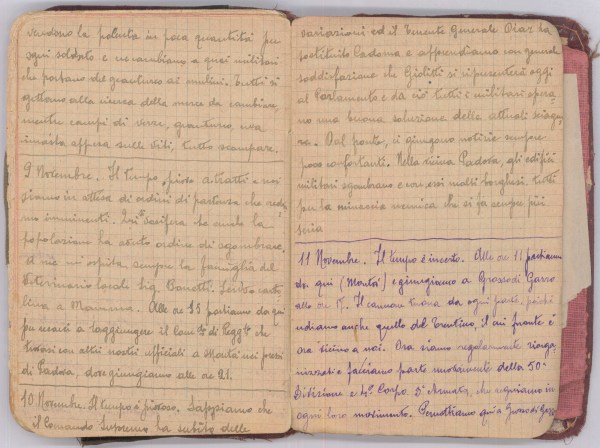 vendono la polenta in poca quantità per
ogni soldato e ne cambiano a quei militari
che portano del granturco ai mulini. Tutti si
gettano alla ricerca della merce da cambiare,
mentre campi di verze, granturco, uva
rimasta appesa alle viti, tutto scompare.
9 Novembre. Il tempo piove a tratti e noi
siamo in attesa di ordini di partenza che
imminenti. Mi si che anche la
popolazione ha avuto ordine di sgombrare.
A me mi ospita sempre la famiglia del
Veterinario locale Sig. Bonetti. Scrivo
a Mamma. Alle ore 15 partiamo da qui
per recarci a raggiungere il Com. di Regg. che
trovasi con altri nostri ufficiali a Montà nei pressi
di Padova, dove giungiamo alle ore 21.
10 Novembre. Il tempo è piovoso. Sappiamo che
il Comando Supremo ha subito delle
variazioni ed il Tenente Generale Diaz ha
sostituito Cadorna e apprendiamo con
soddisfazione che Giolitti si ripresenterà oggi
al Parlamento e da noi tutti i militari
no una buona soluzione della attuale
Dal fronte, ci giungono notizie sempre
poco confortanti. Nella vicina Padova, gli edifici
militari sgombrano e con essi molti borghesi, tutti
per la minaccia nemica che si fa sempre più
seria
11 Novembre. Il tempo è incerto. Alle ore 11 partiamo
da qui (Montà) e giungiamo a Grossodi Gazzo
alle ore 17. Il cannone tuona da ogni parte, poiché
udiamo anche quello del Trentino, il cui fronte è
ora vicino a noi. Ora siamo regolarmente riorga
nizzati e facciamo parte nuovamente della 50ª
Divisione e 4º Corpo Dª Armata, che seguiamo in
ogni loro movimento. Pernottiamo qui a Grossodi Gazzo